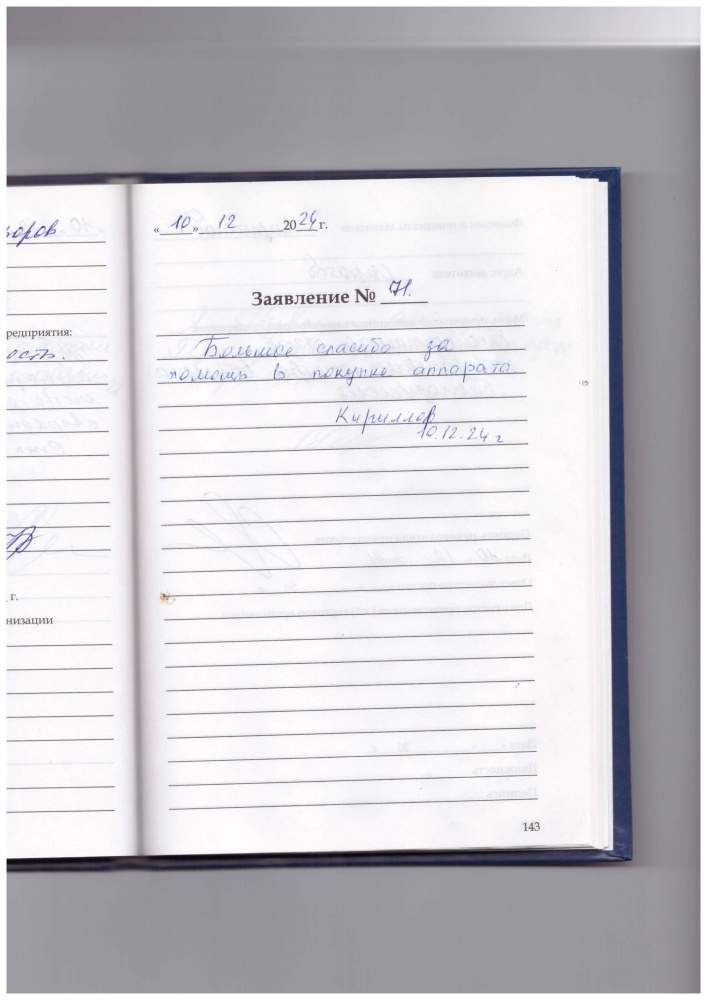 «10» 12 2024 г.
Заявление № 71.
Большое спасибо за
помощь в покупке аппарата
Кириллов
10.12.24 г
143
редприятия:
ость.
г.
низации